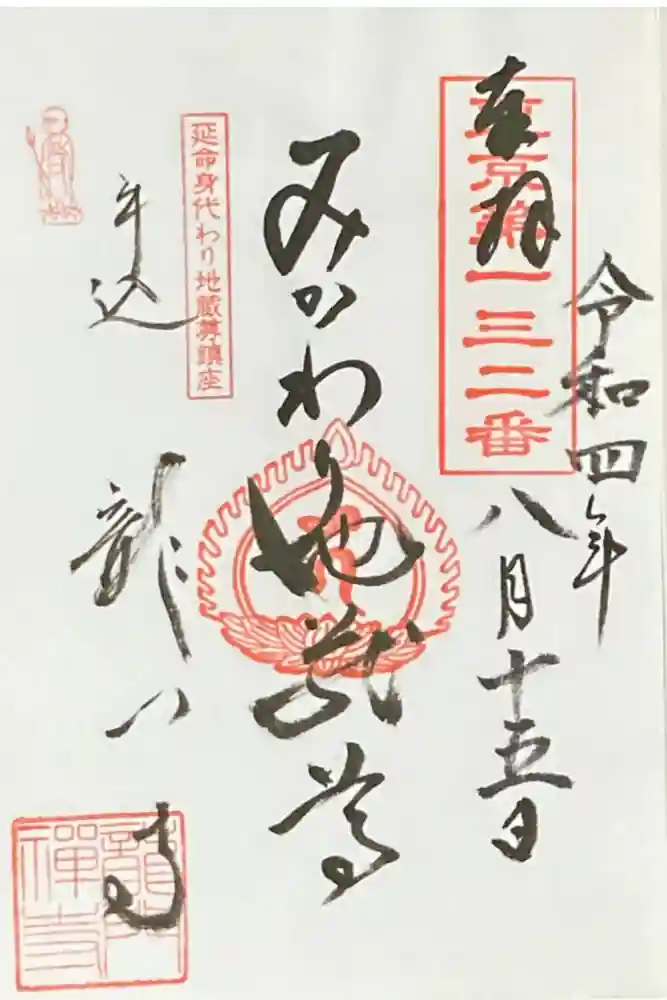 令和四年
八月十五日
奉拝
東京第一三二番
みかわり地蔵尊
延命身代わり地蔵尊鎮座
牛込
龍門寺
龍門禪寺